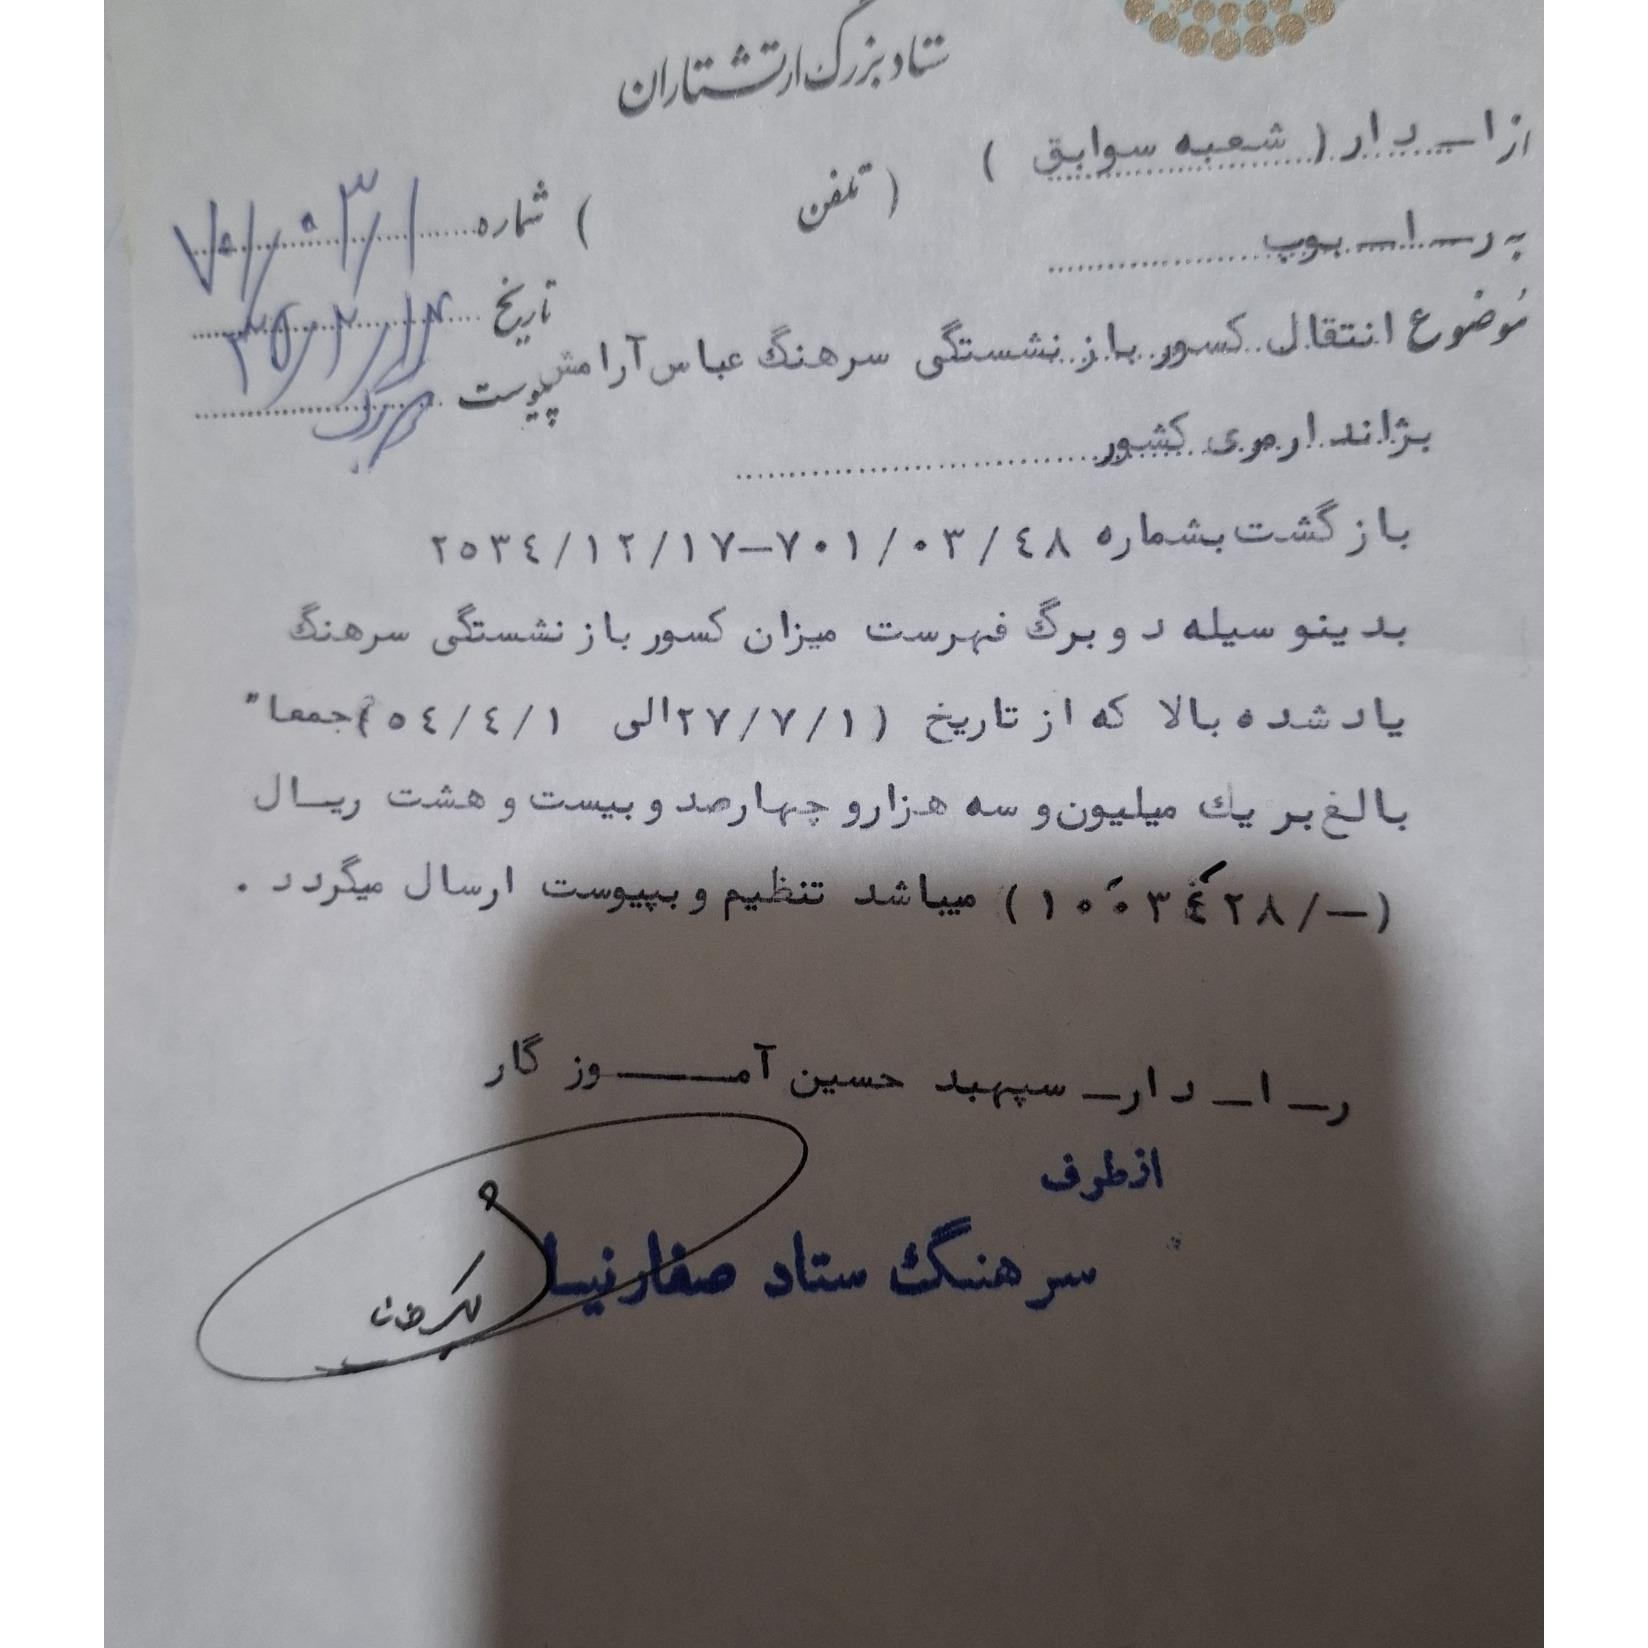 ستاد بزرگ ارتشتاران
از ا ـ د ار ( شعبه سوابق ) ( تلفن ) شماره ۷۰۱/۰۳/
به ر ـ ا ـ بوپ
تاریخ
موضوع انتقال کسور باز نشستگی سرهنگ عباس آرامش پیوست
بژاندارمری کشور
بازگشت بشماره ۷۰۱/۰۳/۴۸-۲۵۳۴/۱۲/۱۷
بدینوسیله دو برگ فهرست میزان کسور باز نشستگی سرهنگ
یاد شده بالا که از تاریخ (۲۷/۷/۱ الی ۵۴/۴/۱) جمعا"
بالغ بر یک میلیون و سه هزار و چهارصد و بیست و هشت ریال
(۱۰۰۳۴۲۸/-) میباشد تنظیم و بپیوست ارسال میگردد .
ر ـ ا ـ د ار ـ سپهبد حسین آموزگار
از طرف
سرهنگ ستاد صفارنیا